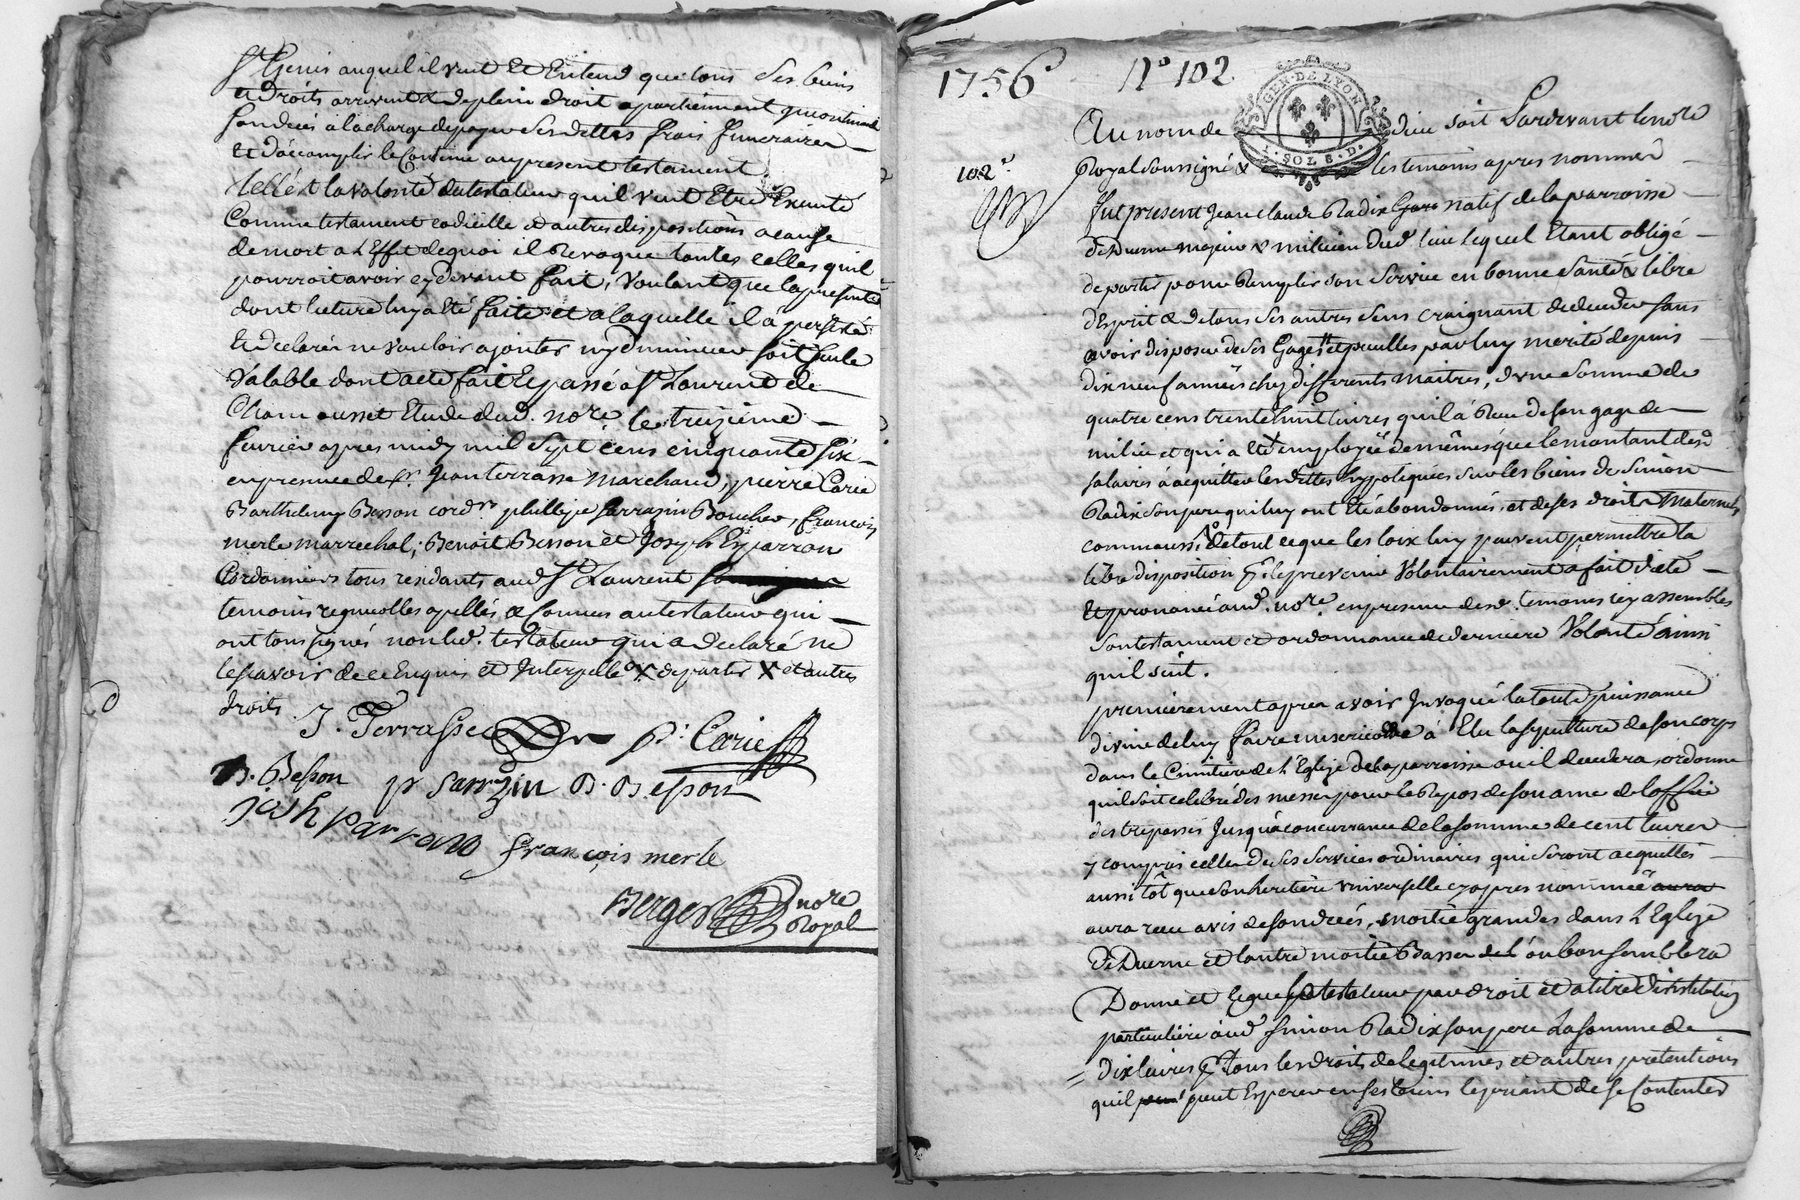 St Genis auquel il veut et entend que tous ses biens
et droits arrivent & de plein droit apartiennent
son deces à la charge de payer ses dettes frais funeraires
et d'accomplir le contenu au present testament.
Telle est la volonté du testateur qu'il veut Etre Executé
Comme testament codicille et autres dispositions a cause
de mort a l'Effet de quoi il Revoque toutes celles qu'il
pourroit avoir cy devant fait, voulant que la presente
dont lecture luy a eté faite et a laquelle il a persisté
et declaré ne vouloir ajouter ny diminuer soit seule
Valable dont acte fait et passé a St Laurent de
Chamousset Etude dud. nore. le treizieme
fevrier apres midy mil sept cens cinquante six
en presence de sr. Jean terrasse Marchand, pierre Carie
Barthelmy Besson cordr phillipe sarrazin Boucher, françois
merle marrechal, Benoit Besson et Joseph Esparron
Cordonniers tous residants aud St Laurent
temoins requis apellés & connus au testateur qui
ont tous signés non led. testateur qui a declaré ne
le scavoir de ce Enquis et Interpellé X de partir X et autres
droits.
J. Terrasse P. Carie
B. Besson pr Sarrazin B. Besson
josh parron françois merle
Berger nore
Royal
1756 No 102
GEN. DE LYON
1. SOL 8. D.
102e
Au nom de dieu soit Pardevant le nore
Royal soussigné & les temoins apres nommés
fut present Jean claude Radix Gar natif de la parroisse
de Duerne majeur & milicien dud. lieu lequel Etant obligé
de partir pour Remplir son Service en bonne santé & libre
d'Esprit & de tous ses autres sens craignant de deceder sans
avoir disposé de ses Gages par luy merité depuis
dix neuf années chez differents maitres, d'une somme de
quatre cens trente huit livres qu'il a Reçu de son gage de
milice et qui a eté employée de même que le montant desd
salaires à acquitter les dettes hypotequées sur les biens de Simon
Radix son pere qui luy ont été abandonnés, et de ses droits Maternels
comm'aussi de tout ce que les loix luy peuvent permettre la
libre disposition volontairement a fait dicté
et prononcé aud. nore. en presence desd. temoins icy assemblés
son testament et ordonnance de derniere Volonté ainsi
qu'il suit.
premierement apres avoir Invoqué la toute puissance
divine de luy faire misericorde à Elu la sepulture de son corps
dans le Cimitiere de l'Eglise de la parroisse ou il decedera, ordonne
qu'il soit celebré des messes pour le Repos de son ame de l'office
des trepassés Jusqu'à concurrance de la somme de cent livres
y compris celles de ses services ordinaires qui seront acquittés
aussi tôt que son heritière universelle cy apres nommée
aura reçu avis de son decés, moitié grandes dans l'Eglise
de Duerne et l'autre moitié Basses ou bon semblera
Donne et legue le testateur par droit et a titre d'institution
particulière aud Simon Radix son pere la somme de
dix livres pr tous les droits de legitimes et autres pretentions
qu'il peut Esperer en ses biens le priant de se Contenter